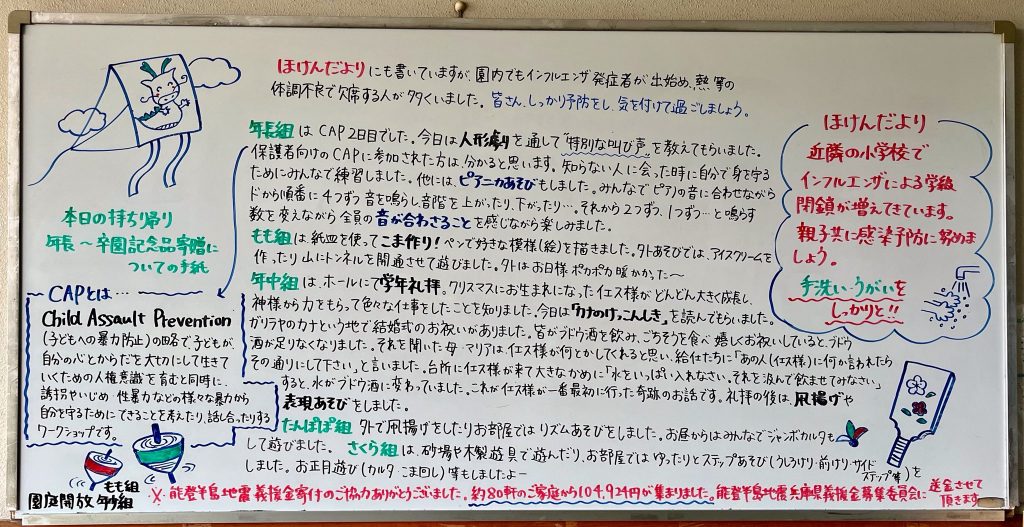 ほけんだよりにも書いていますが、園内でもインフルエンザ発症者が出始め、熱等の
体調不良で欠席する人が多くいました。皆さん、しっかり予防をし、気を付けて過ごしましょう。
年長組はCAP2日目でした。今日は人形劇りを通して"特別な叫び声"を教えてもらいました。
保護者向けのCAPに参加された方は、分かると思います。知らない人に会った時に自分で身を守る
ためにみんなで練習しました。他には、ピアニカあそびもしました。みんなでピアノの音に合わせながら
ドから順番に4つずつ音を鳴らし音階を上がったり、下がったり…。それから2つずつ、1つずつ…と鳴らす
数を変えながら全員の音が合わさることを感じながら楽しみました。
もも組は紙皿を使ってこま作り!ペンで好きな模様(絵)を描きました。外あそびでは、アイスクリームを
作ったり山にトンネルを開通させて遊びました。外はお日様ポカポカ暖かかった〜
年中組は、ホールにて学年礼拝。クリスマスにお生まれになったイエス様がどんどん大きく成長し、
神様から力をもらって色々な仕事をしたことを知りました。今日は「カナのけっこんしき」を読んでもらいました。
ガリラヤのカナという地で結婚式のお祝いがありました。皆がブドウ酒を飲み、ごちそうを食べ嬉しくお祝いしていると、ブドウ
酒が足りなくなりました。それを聞いた母・マリアは、イエス様が何とかしてくれると思い、給仕たちに「あの人(イエス様)に何か言われたら
その通りにして下さい」と言いました。台所にイエス様が来て大きなかめに「水をいっぱい入れなさい。それを汲んで飲ませてみなさい」
すると、水がブドウ酒に変わっていました。これがイエス様が一番最初に行った奇跡のお話です。礼拝の後は、凧揚げや
表現あそびをしました。
たんぽぽ組 外で凧揚げをしたりお部屋ではリズムあそびをしました。お昼からはみんなでジャンボカルタも
して遊びました。さくら組は、砂場や木製遊具で遊んだり、お部屋ではゆったりとステップあそび(うしろけり・前けり・サイド
ステップ等)を
しました。お正月遊び(カルタ・こま回し)等もしましたよー
※ 能登半島地震義援金寄付のご協力ありがとうございました。約80軒のご家庭から104,924円が集まりました。能登半島地震兵庫県義援金募集委員会に送金させて
頂きます
本日の持ち帰り
年長〜卒園記念品寄贈に
ついての手紙
CAPとは…
Child Assault Prevention
(子どもへの暴力防止)の略で子どもが、
自分の心とからだを大切にして生きて
いくための人権意識を育むと同時に、
誘拐やいじめ 性暴力などの様々な暴力から
自分を守るためにできることを考えたり、話し合ったりする
ワークショップです。
もも組
園庭開放 年少組
ほけんだより
近隣の小学校で
インフルエンザによる学級
閉鎖が増えてきています。
親子共に感染予防に努めま
しょう。
手洗い・うがいを
しっかりと!!